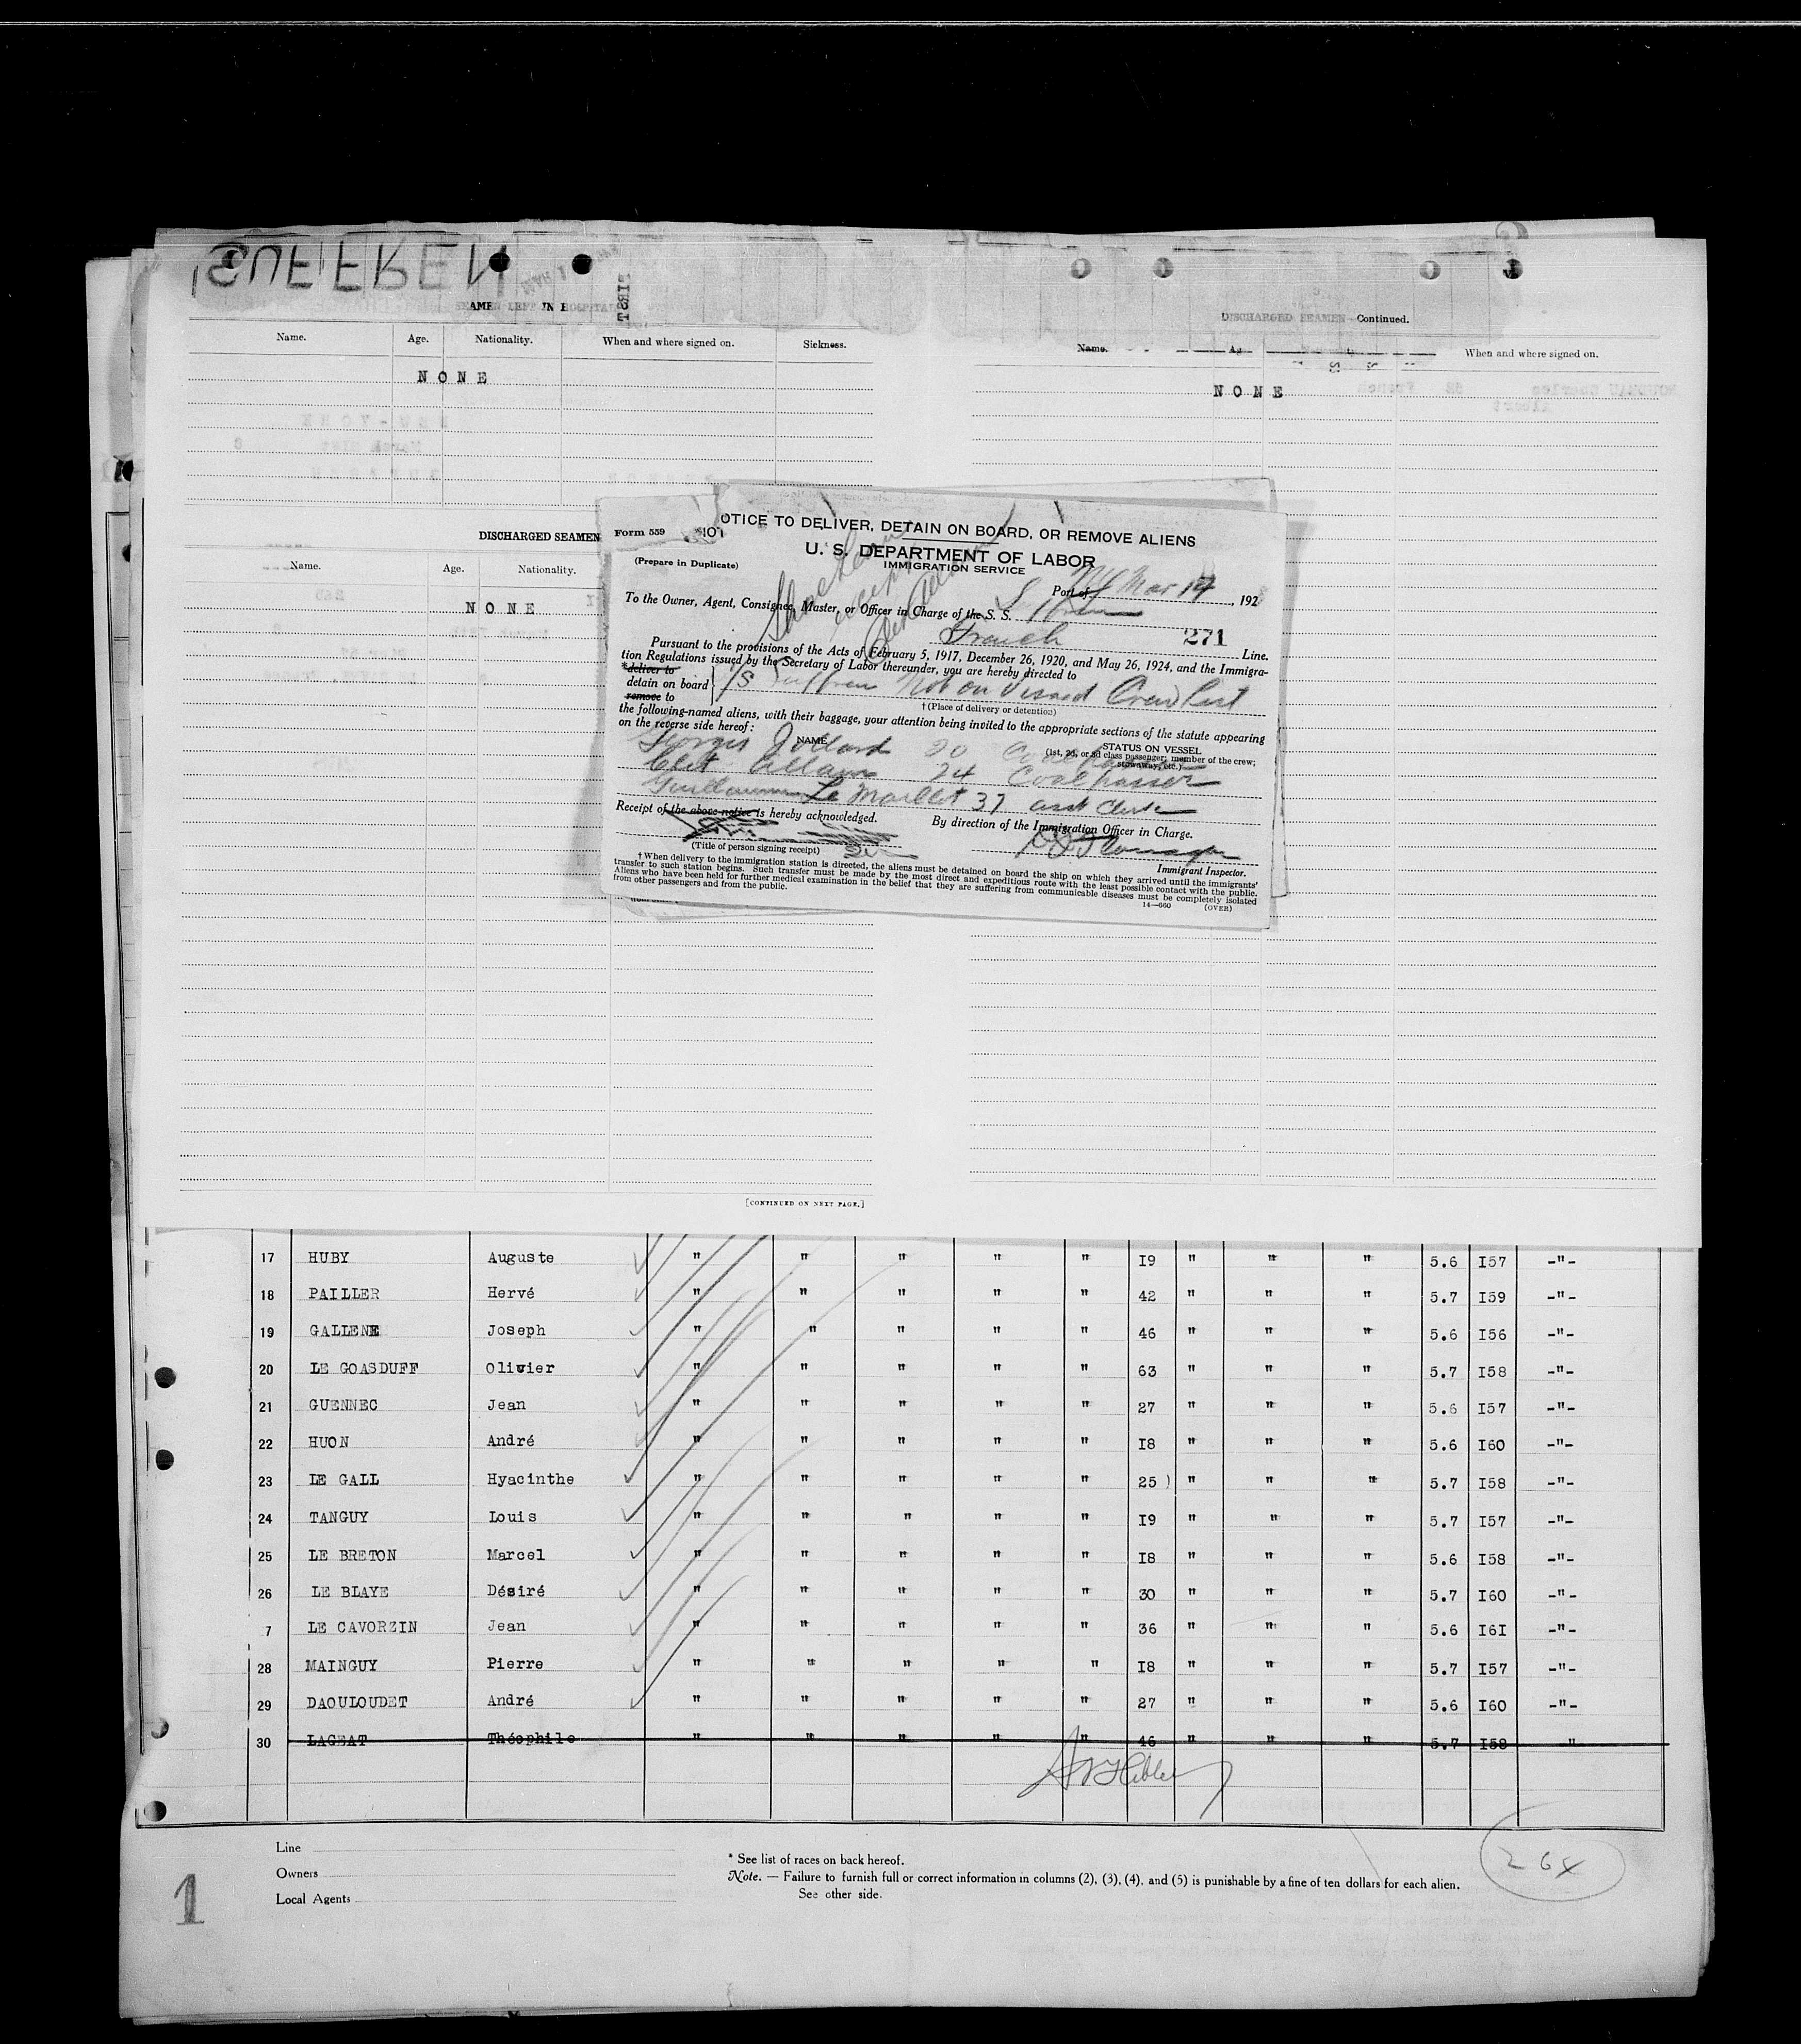 SUFFREN
SEAMEN LEFT IN HOSPITAL
Name. Age. Nationality. When and where signed on. Sickness.
NONE
DISCHARGED SEAMEN Continued.
Name. When and where signed on.
NONE
DISCHARGED SEAMEN
Name. Age. Nationality.
NONE
Form 559
NOTICE TO DELIVER, DETAIN ON BOARD, OR REMOVE ALIENS
(Prepare in Duplicate)
U. S. DEPARTMENT OF LABOR
IMMIGRATION SERVICE
Port of NY Mar 14, 192
To the Owner, Agent, Consignee, Master, or Officer in Charge of the S. S. Suffren
French 271 Line.
Pursuant to the provisions of the Acts of February 5, 1917, December 26, 1920, and May 26, 1924, and the Immigra-
tion Regulations issued by the Secretary of Labor thereunder, you are hereby directed to
*deliver to
detain on board
remove to
S/S Suffren Not on Visaed Crew List
† (Place of delivery or detention)
the following-named aliens, with their baggage, your attention being invited to the appropriate sections of the statute appearing
on the reverse side hereof:
NAME STATUS ON VESSEL
(1st, 2d, or 3d class passenger; member of the crew;
stowaway, etc.)
Georges 20
24 Coal passer
Guillaume Le Maillot 37 asst
Receipt of the above notice is hereby acknowledged.
By direction of the Immigration Officer in Charge.
(Title of person signing receipt)
Immigrant Inspector.
† When delivery to the immigration station is directed, the aliens must be detained on board the ship on which they arrived until the immigrants'
transfer to such station begins. Such transfer must be made by the most direct and expeditious route with the least possible contact with the public.
Aliens who have been held for further medical examination in the belief that they are suffering from communicable diseases must be completely isolated
from other passengers and from the public.
14—660 (OVER)
[CONTINUED ON NEXT PAGE.]
17 HUBY Auguste " " " " " I9 " " " 5.6 I57 -"-
18 PAILLER Hervé " " " " " 42 " " " 5.7 I59 -"-
19 GALLENE Joseph " " " " " 46 " " " 5.6 I56 -"-
20 LE GOASDUFF Olivier " " " " " 63 " " " 5.7 I58 -"-
21 GUENNEC Jean " " " " " 27 " " " 5.6 I57 -"-
22 HUON André " " " " " I8 " " " 5.6 I60 -"-
23 LE GALL Hyacinthe " " " " " 25) " " " 5.7 I58 -"-
24 TANGUY Louis " " " " " I9 " " " 5.7 I57 -"-
25 LE BRETON Marcel " " " " " I8 " " " 5.6 I58 -"-
26 LE BLAYE Désiré " " " " " 30 " " " 5.7 I60 -"-
7 LE CAVORZIN Jean " " " " " 36 " " " 5.6 I6I -"-
28 MAINGUY Pierre " " " " " I8 " " " 5.7 I57 -"-
29 DAOULOUDET André " " " " " 27 " " " 5.6 I60 -"-
30 LAGEAT Théophile " " " " " 46 " " " 5.7 I58 "
Line
Owners
Local Agents
* See list of races on back hereof.
Note. — Failure to furnish full or correct information in columns (2), (3), (4), and (5) is punishable by a fine of ten dollars for each alien.
See other side.
264
1